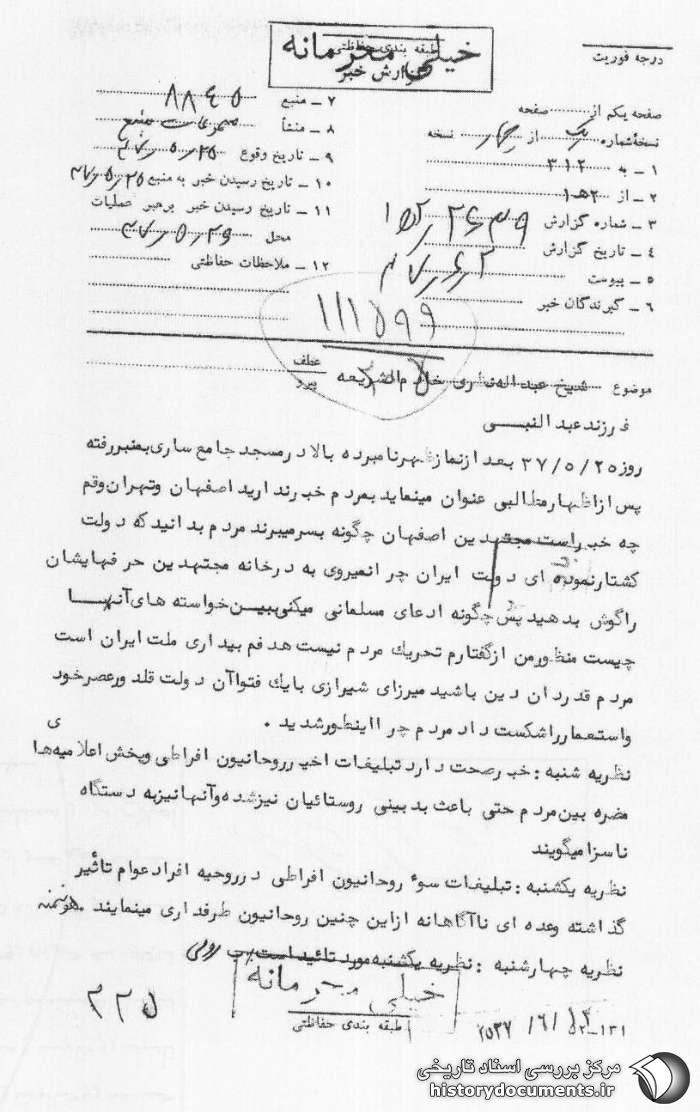 خیلی محرمانه
طبقه بندی حفاظتی
گزارش خبر
درجه فوریت
صفحه یکم از صفحه
نسخه شماره یک از چهار نسخه
۱ ـ به ۳۱۲
۲ ـ از ۲هـ۱
۳ ـ شماره گزارش
۴ ـ تاریخ گزارش
۵ ـ پیوست
۶ ـ گیرندگان خبر
۷ ـ منبع ۸۸۴۵
۸ ـ منشأ
۹ ـ تاریخ وقوع ۳۷/۵/۲۵
۱۰ ـ تاریخ رسیدن خبر به منبع ۳۷/۵/۲۵
۱۱ ـ تاریخ رسیدن خبر برهبر عملیات
محل ۳۷/۵/۲۹
۱۲ ـ ملاحظات حفاظتی
۱۱۱۵۹۹
موضوع شیخ عبداله نظری خادم الشریعه
عطف
پیرو
فرزند عبدالنبی
روز ۳۷/۵/۲۵ بعد از نماز ظهر نامبرده بالا در مسجد جامع ساری بمنبر رفته
پس از اظهار مطالبی عنوان مینماید بمردم خبر ندارید اصفهان وتهران وقم
چه خبر است مجتهدین اصفهان چگونه بسر میبرند مردم بدانید که دولت
کشتار نموده ای دولت ایران چرا نمیروی به در خانه مجتهدین حرفهایشان
را گوش بدهید پس چگونه ادعای مسلمانی میکنی ببین خواسته های آنها
چیست منظور من از گفتارم تحریك مردم نیست هدفم بیداری ملت ایران است
مردم قدردان دین باشید میرزای شیرازی با یك فتوا آن دولت قلدور عصر خود
و استعمار را شکست داد مردم چرا اینطور شدید .
نظریه شنبه : خبر صحت دارد تبلیغات اخیر روحانیون افراطی وپخش اعلامیه های
مضره بین مردم حتی باعث بدبینی روستائیان نیز شده و آنها نیز به دستگاه
ناسزا میگویند
نظریه یکشنبه : تبلیغات سوء روحانیون افراطی در روحیه افراد عوام تاثیر
گذاشته وعده ای ناآگاهانه از این چنین روحانیون طرفداری مینمایند .
نظریه چهارشنبه : نظریه یکشنبه مورد تائید است
خیلی محرمانه
طبقه بندی حفاظتی
مرکز بررسی اسناد تاریخی
historydocuments.ir